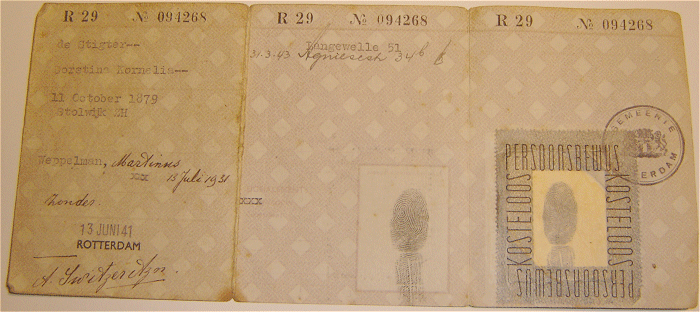 R 29 № 094268
de Stigter--
Kornelia--
11 October 1879
Stolwijk ZH
Weppelman, Martinus
xxx 13 Juli 1931
Zonder
13 JUNI 41
ROTTERDAM
R 29 № 094268
Langewelle 51
31.3.43 34b
xxx
R 29 № 094268
GEMEENTE
ROTTERDAM
PERSOONSBEWIJS
KOSTELOOS
KOSTELOOS
PERSOONSBEWIJS